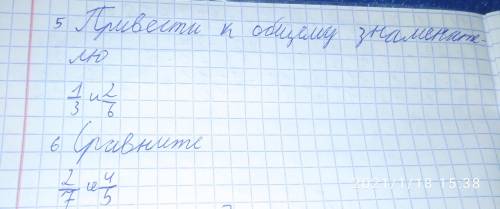 5 Привести к общему знаменате-
лю
1/3 и 2/6
6 Сравните
2/7 и 4/5
2021/1/18 15:38